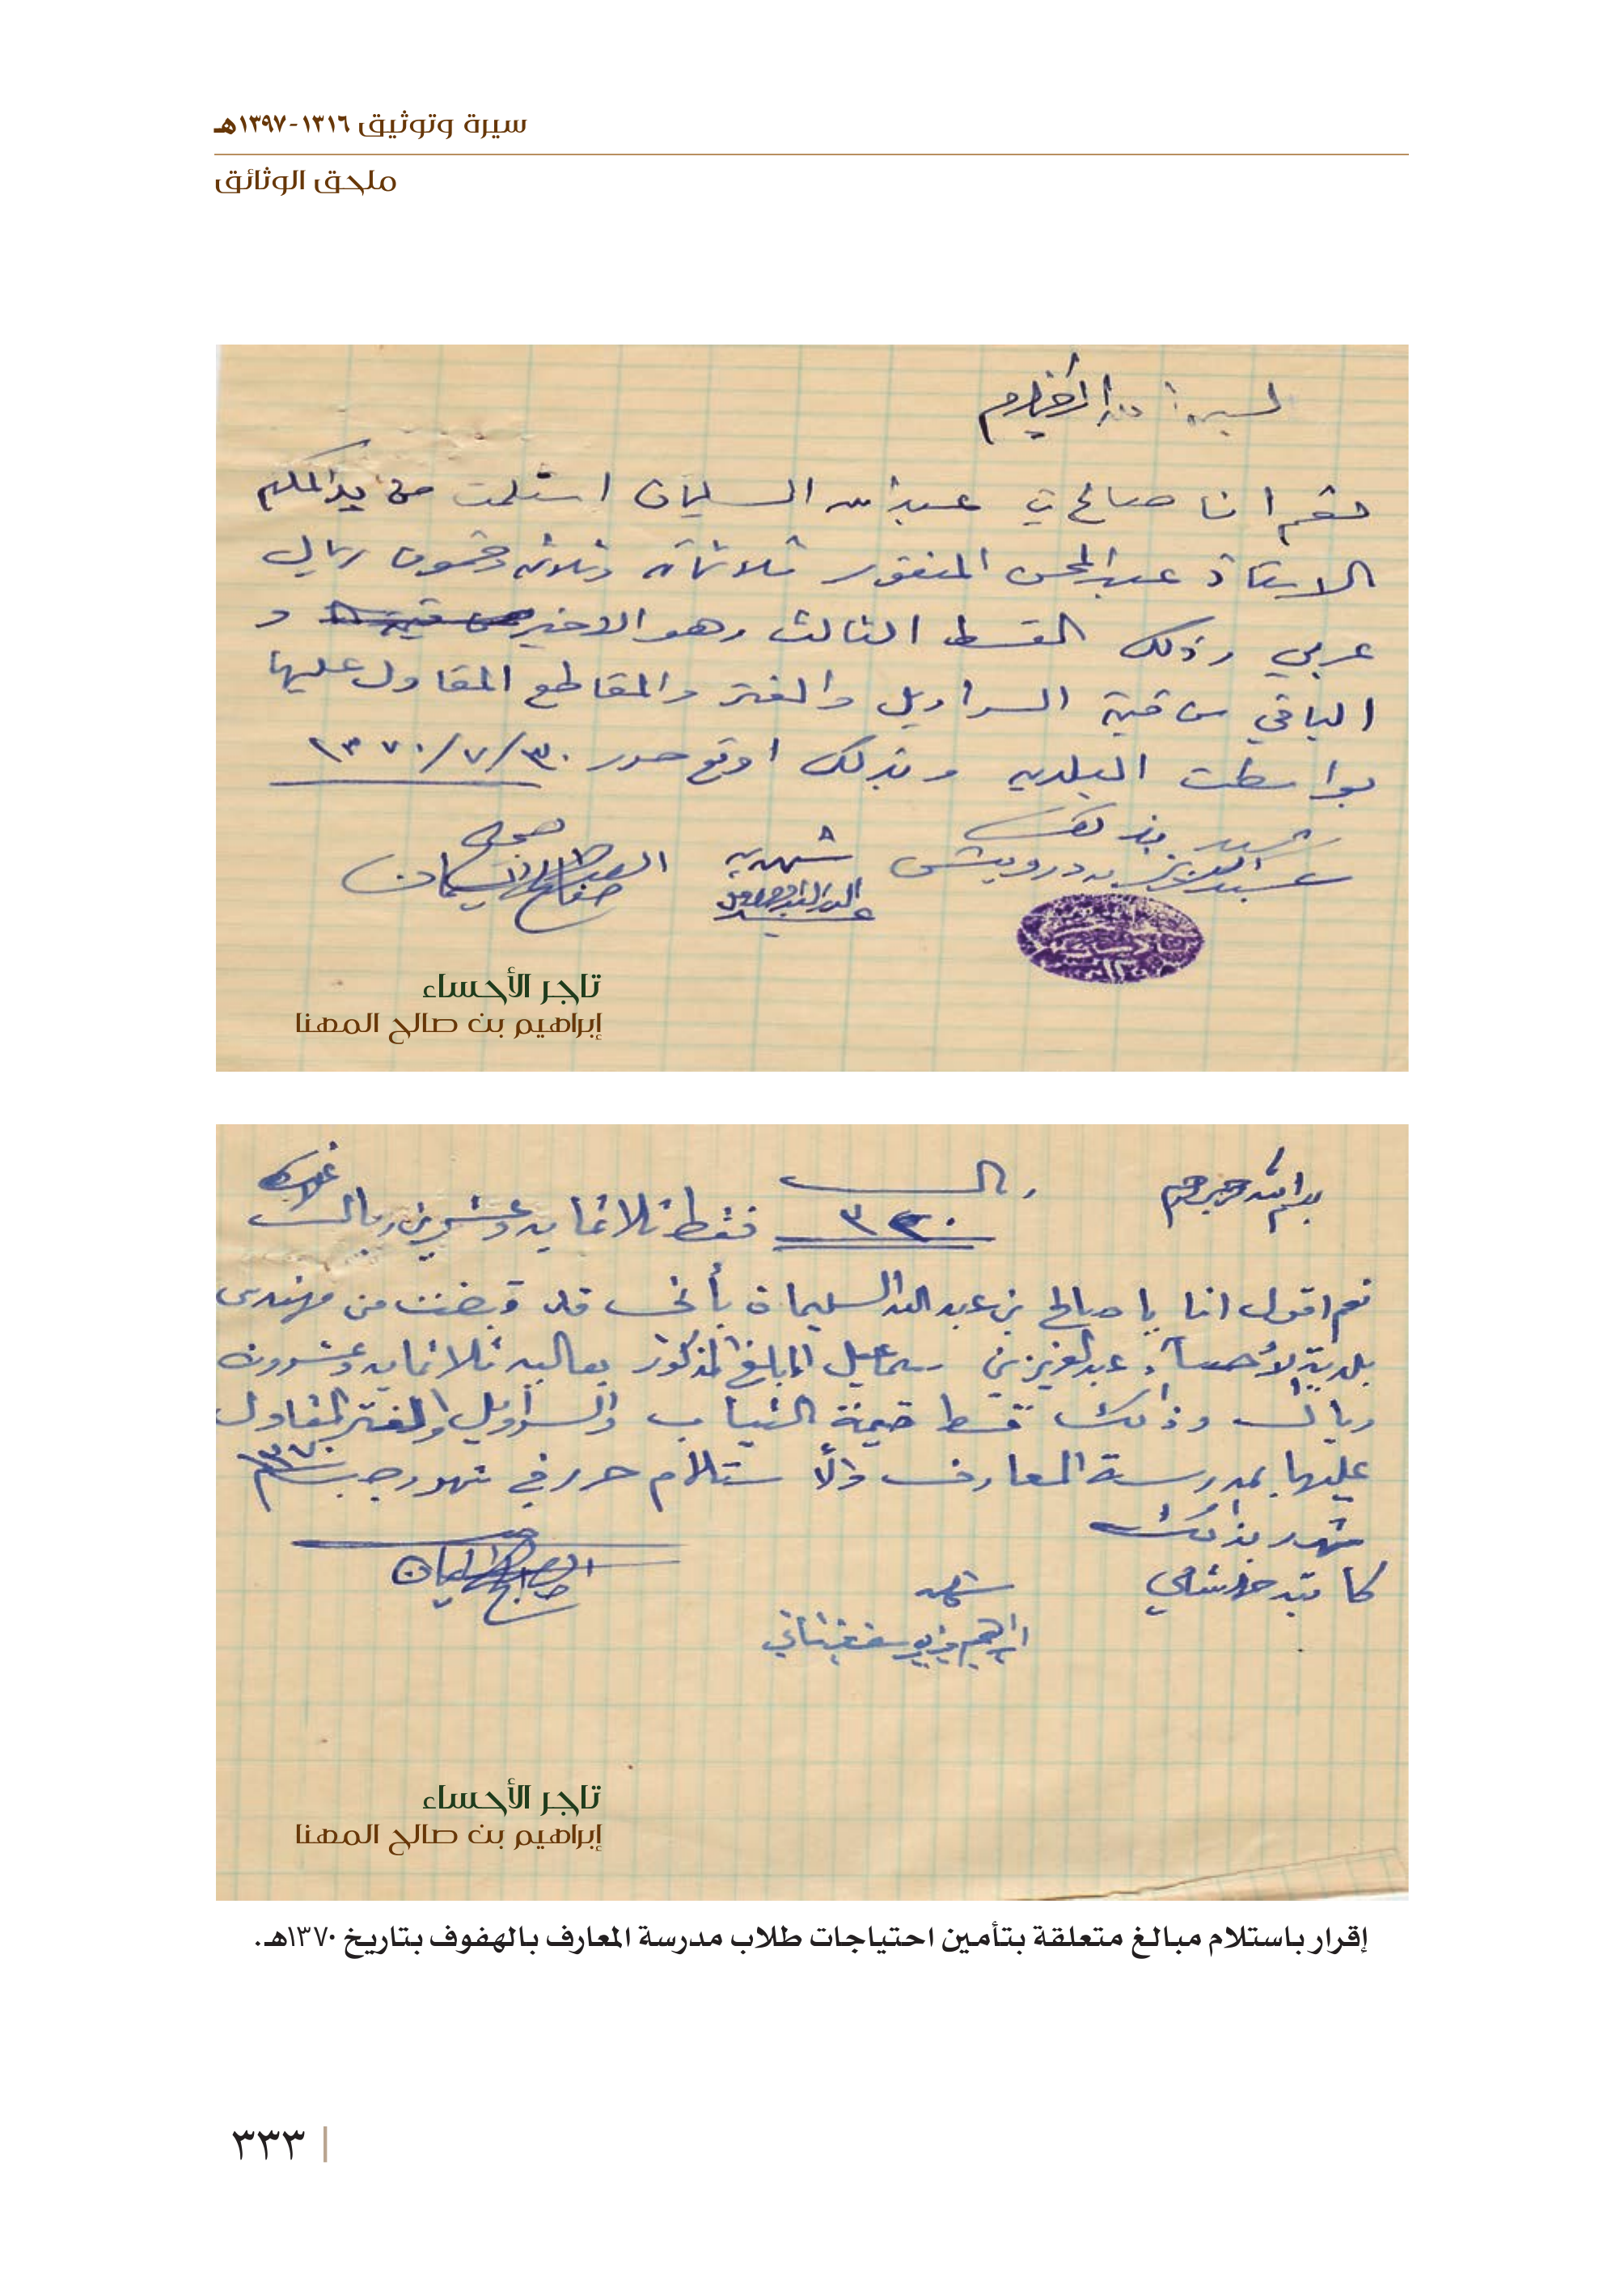 سيرة وتوثيق ١٣١٦-١٣٩٧هـ
ملحق الوثائق
بسم الله الرحمن الرحيم
نعم انا صالح بن عبدالله السليمان استلمت من يد المكرم
الاستاذ عبدالمحسن المنقور ثلاثمائه وثلاثه وخمسون ريال
عربي وذلك القسط الثالث وهو الاخير و
الباقي من قيمة السراويل والغتر والمقاطع المقاول عليها
بواسطت البلديه وبذلك اوقع حرر ٣٠/٧/١٣٧٠
شهد بذلك
عبدالعزيز درويش
شهد به
صالح السليمان
تاجر الأحساء
إبراهيم بن صالح المهنا
بسم الله الرحمن الرحيم
ريال
٣٢٠ فقط ثلاثمايه وعشرين ريال
نعم اقول انا يا صالح بن عبدالله السليمان بأني قد قبضت من مهندس
بلدية الأحساء عبدالعزيز بن سماعيل المبلغ المذكور بعاليه ثلاثمايه وعشرون
ريال وذالك قسط قيمة الثياب والسراويل والغتر المقاول
عليها بمدرسة المعارف والأستلام حرر في شهر رجب ١٣٧٠
شهد بذالك
كاتبه
شهد
ابراهيم بن يوسف
صالح السليمان
تاجر الأحساء
إبراهيم بن صالح المهنا
إقرار باستلام مبالغ متعلقة بتأمين احتياجات طلاب مدرسة المعارف بالهفوف بتاريخ ١٣٧٠هـ.
٣٣٣